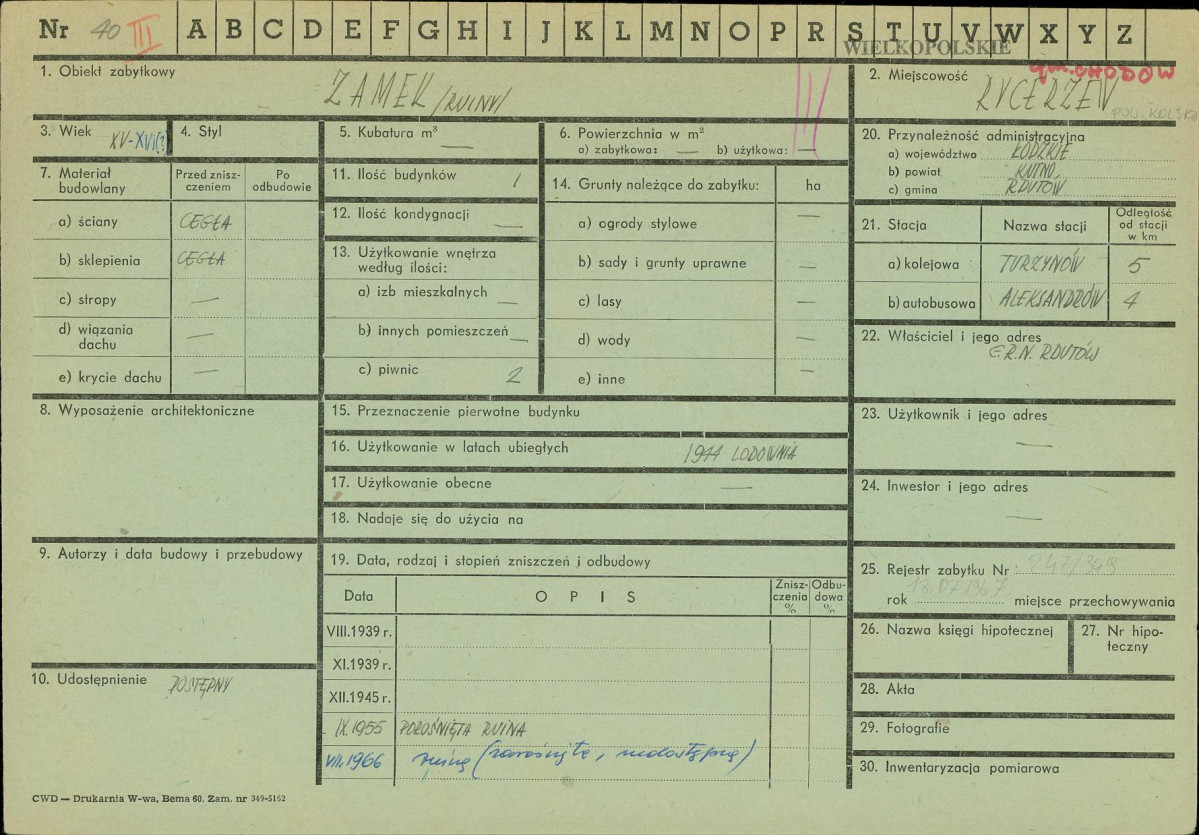 Nr 40 III A B C D E F G H I J K L M N O P R S T U V W X Y Z
WIELKOPOLSKIE
1. Obiekt zabytkowy ZAMEK /RUINY/
2. Miejscowość gm. CHODÓW
RYCERZEW
POW. KOLSKI
3. Wiek XV-XVI(?)
4. Styl
5. Kubatura m³ —
6. Powierzchnia w m²
a) zabytkowa: — b) użytkowa: —
7. Materiał budowlany
Przed zniszczeniem
Po odbudowie
a) ściany CEGŁA
b) sklepienia CEGŁA
c) stropy —
d) wiązania dachu —
e) krycie dachu —
8. Wyposażenie architektoniczne
9. Autorzy i data budowy i przebudowy
10. Udostępnienie DOSTĘPNY
11. Ilość budynków 1
12. Ilość kondygnacji —
13. Użytkowanie wnętrza
według ilości:
a) izb mieszkalnych —
b) innych pomieszczeń —
c) piwnic 2
14. Grunty należące do zabytku: ha
a) ogrody stylowe —
b) sady i grunty uprawne —
c) lasy —
d) wody —
e) inne —
15. Przeznaczenie pierwotne budynku
16. Użytkowanie w latach ubiegłych 1944 LODOWNIA
17. Użytkowanie obecne —
18. Nadaje się do użycia na
19. Data, rodzaj i stopień zniszczeń i odbudowy
Data OPIS Znisz-czenia % Odbu-dowa %
VIII.1939 r.
XI.1939 r.
XII.1945 r.
IX.1955 POROŚNIĘTA RUINA
VII.1966 ruina (zarośnięte, niedostępne)
20. Przynależność administracyjna
a) województwo ŁÓDZKIE
b) powiat KUTNO
c) gmina RDUTÓW
21. Stacja Nazwa stacji Odległość od stacji w km
a) kolejowa TURZYNÓW 5
b) autobusowa ALEKSANDRÓW 4
22. Właściciel i jego adres
G.R.N. RDUTÓW
23. Użytkownik i jego adres
—
24. Inwestor i jego adres
—
25. Rejestr zabytku Nr 247/349
rok 18.07.1967 miejsce przechowywania
26. Nazwa księgi hipotecznej
27. Nr hipo-
teczny
28. Akta
29. Fotografie
30. Inwentaryzacja pomiarowa
CWD — Drukarnia W-wa, Bema 60. Zam. nr 349-5162